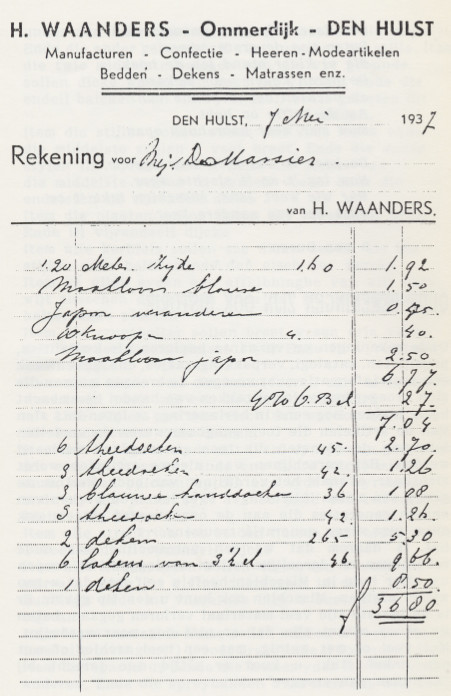 H. WAANDERS - Ommerdijk - DEN HULST
Manufacturen - Confectie - Heeren-Modeartikelen
Bedden - Dekens - Matrassen enz.
DEN HULST, 7 Mei 1937
Rekening voor Mej.
van H. WAANDERS.
1.20 Meter Zijde 1.60 1.92
Maakloon blouse 1.50
Japon veranderen 0.45
knoopen 4. 40.
Maakloon japon 2.50
6.77
4% O. Bel. 27
7.04
6 theedoeken 45. 2.70
3 theedoeken 42. 1.26
3 blauwe handdoeken 36 1.08
theedoeken 42. 1.26
2 deken 265 5.30
6 lakens van 3½ el. 9 66.
1 deken 8.50
f 36 80